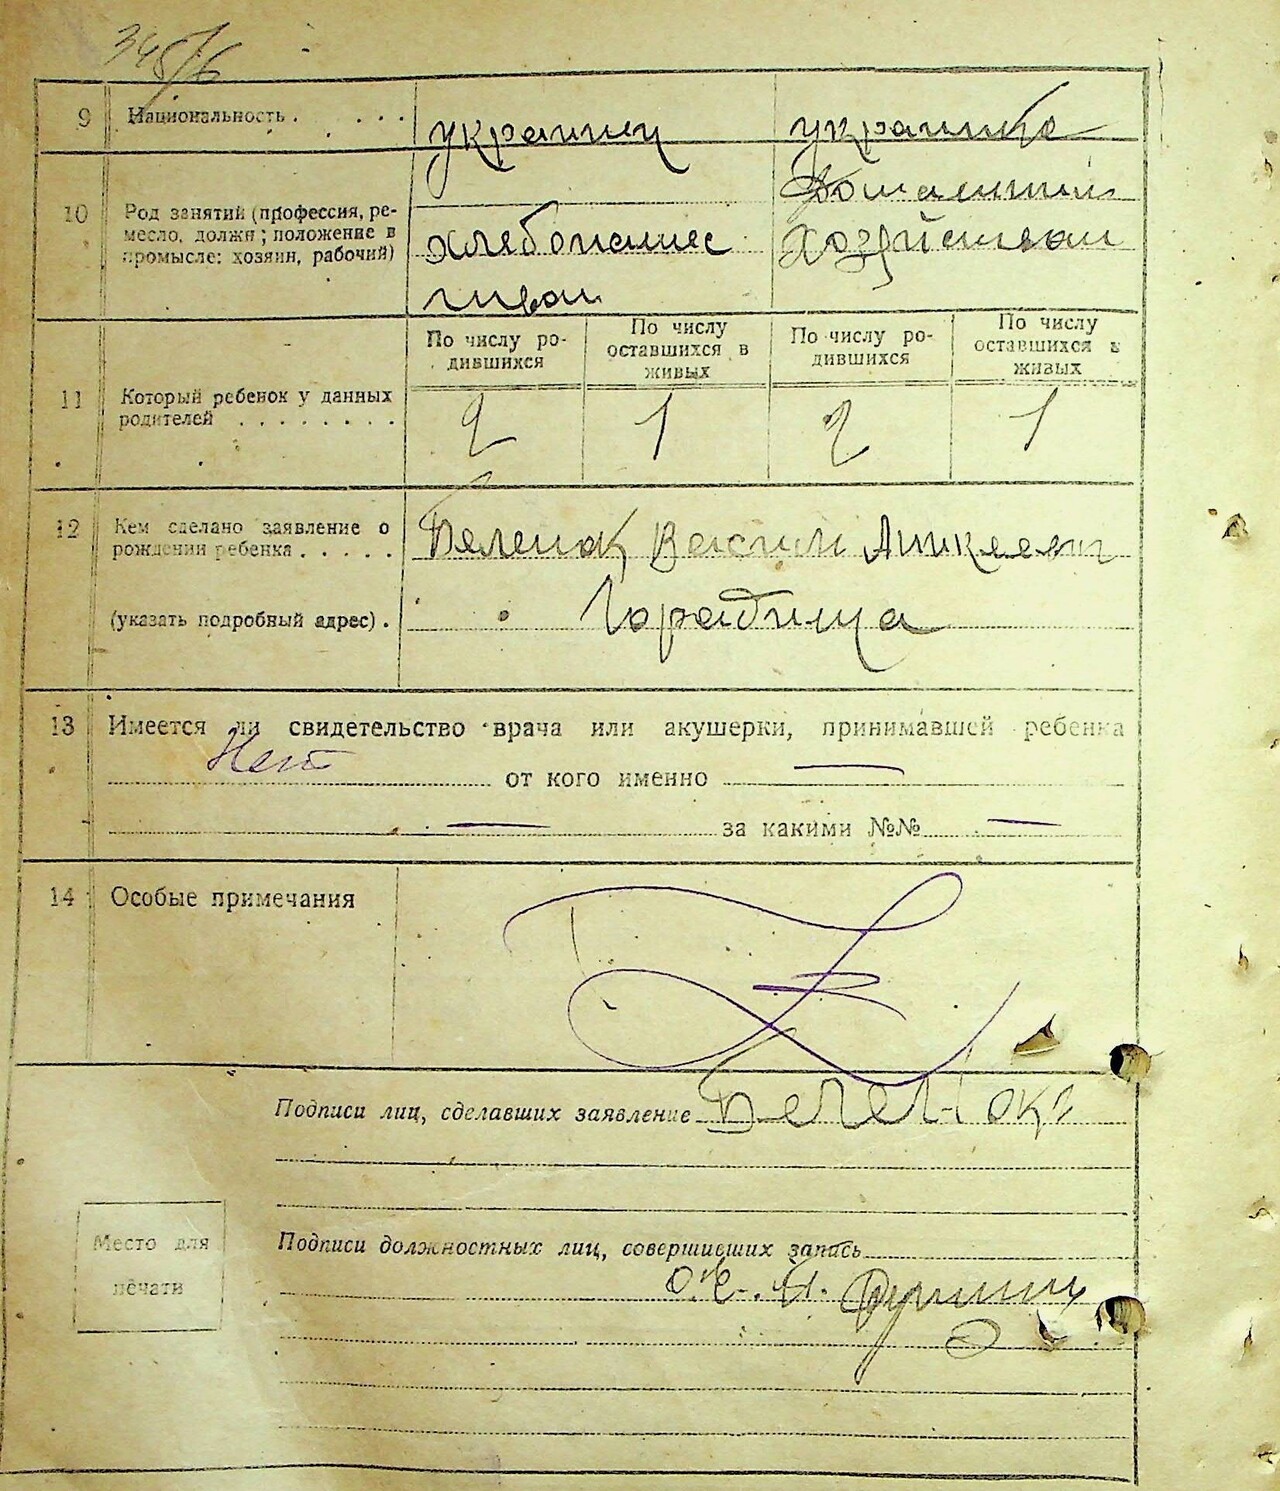 345/6
9 Национальность . . . . . украинец украинка
10 Род занятий (профессия, ре-
месло, должн; положение в
промысле: хозяин, рабочий)
хлебопашес
твом
Домашним
хозяйством
11 Который ребенок у данных
родителей . . . . . . . .
По числу ро-
дившихся
По числу
оставшихся в
живых
По числу ро-
дившихся
По числу
оставшихся в
живых
2 1 2 1
12 Кем сделано заявление о
рождении ребенка . . . . .
Беленок
(указать подробный адрес) . Горадища
13 Имеется ли свидетельство врача или акушерки, принимавшей ребенка
Нет от кого именно —
— за какими №№ —
14 Особые примечания
Подписи лиц, сделавших заявление Беленок
Место для
печати
Подписи должностных лиц, совершивших запись